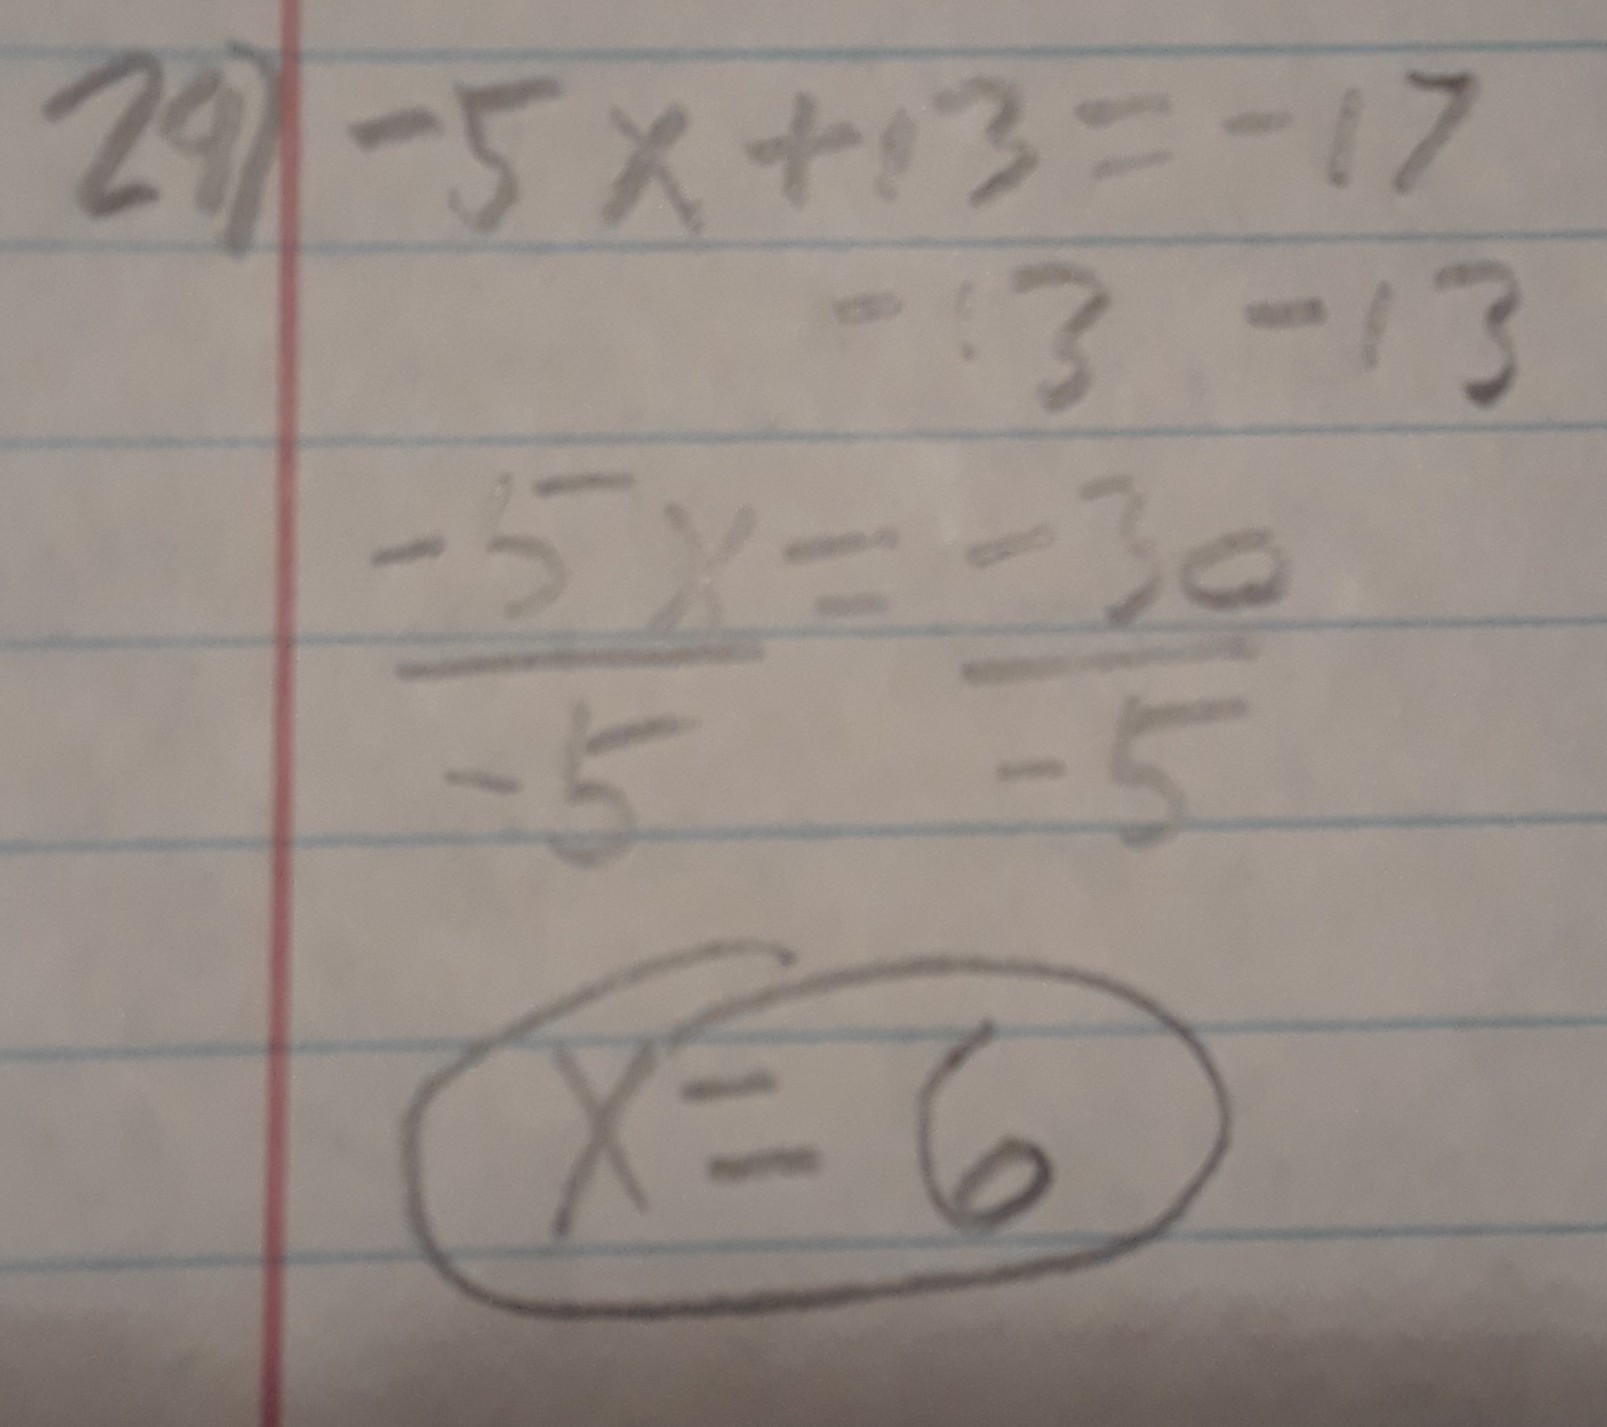 29) -5x+13=-17
-13 -13
-5x=-30
-5 -5
x=6